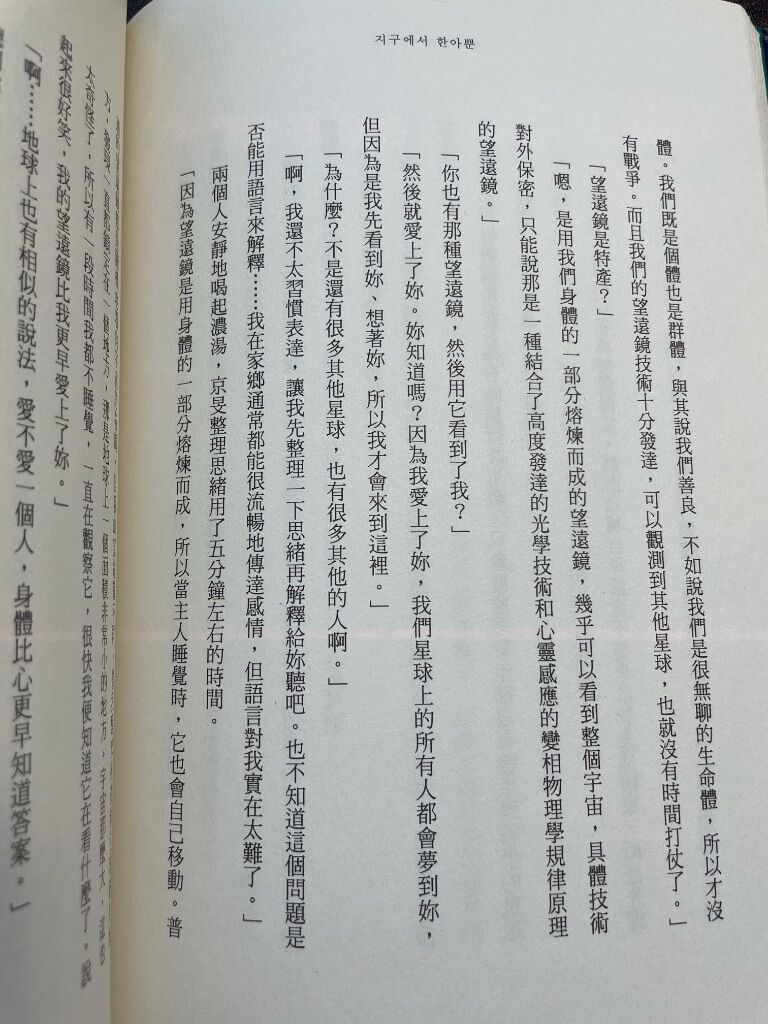 지구에서 한아뿐
體。我們既是個體也是群體,與其說我們善良,不如說我們是很無聊的生命體,所以才沒
有戰爭。而且我們的望遠鏡技術十分發達,可以觀測到其他星球,也就沒有時間打仗了。」
「望遠鏡是特產?」
「嗯,是用我們身體的一部分熔煉而成的望遠鏡,幾乎可以看到整個宇宙,具體技術
對外保密,只能說那是一種結合了高度發達的光學技術和心靈感應的變相物理學規律原理
的望遠鏡。」
「你也有那種望遠鏡,然後用它看到了我?」
「然後就愛上了妳。妳知道嗎?因為我愛上了妳,我們星球上的所有人都會夢到妳,
但因為是我先看到妳、想著妳,所以我才會來到這裡。」
「為什麼?不是還有很多其他星球,也有很多其他的人啊。」
「啊,我還不太習慣表達,讓我先整理一下思緒再解釋給妳聽吧。也不知道這個問題是
否能用語言來解釋……我在家鄉通常都能很流暢地傳達感情,但語言對我實在太難了。」
兩個人安靜地喝起濃湯,京旻整理思緒用了五分鐘左右的時間。
「因為望遠鏡是用身體的一部分熔煉而成,所以當主人睡覺時,它也會自己移動。普
地球上一個面積非常小的地方。宇宙那麼大,這也
太奇怪了,所以有一段時間我都不睡覺,一直在觀察它,很快我便知道它在看什麼了。說
起來很好笑,我的望遠鏡比我更早愛上了妳。」
「啊……地球上也有相似的說法,愛不愛一個人,身體比心更早知道答案。」